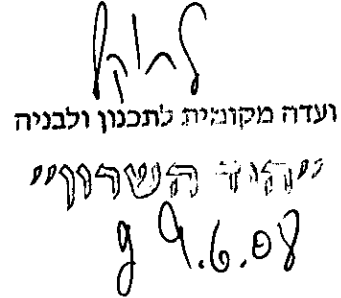 ועדה מקומית לתכנון ולבניה
"הוד השרון"
9.6.08